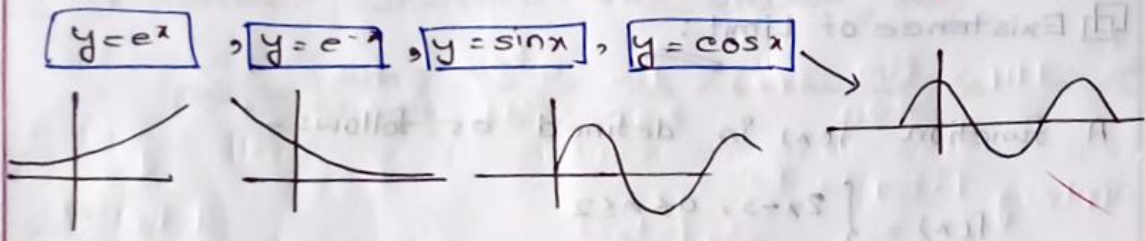 y=eˣ , y = e⁻ˣ , y = sinx , y = cosx